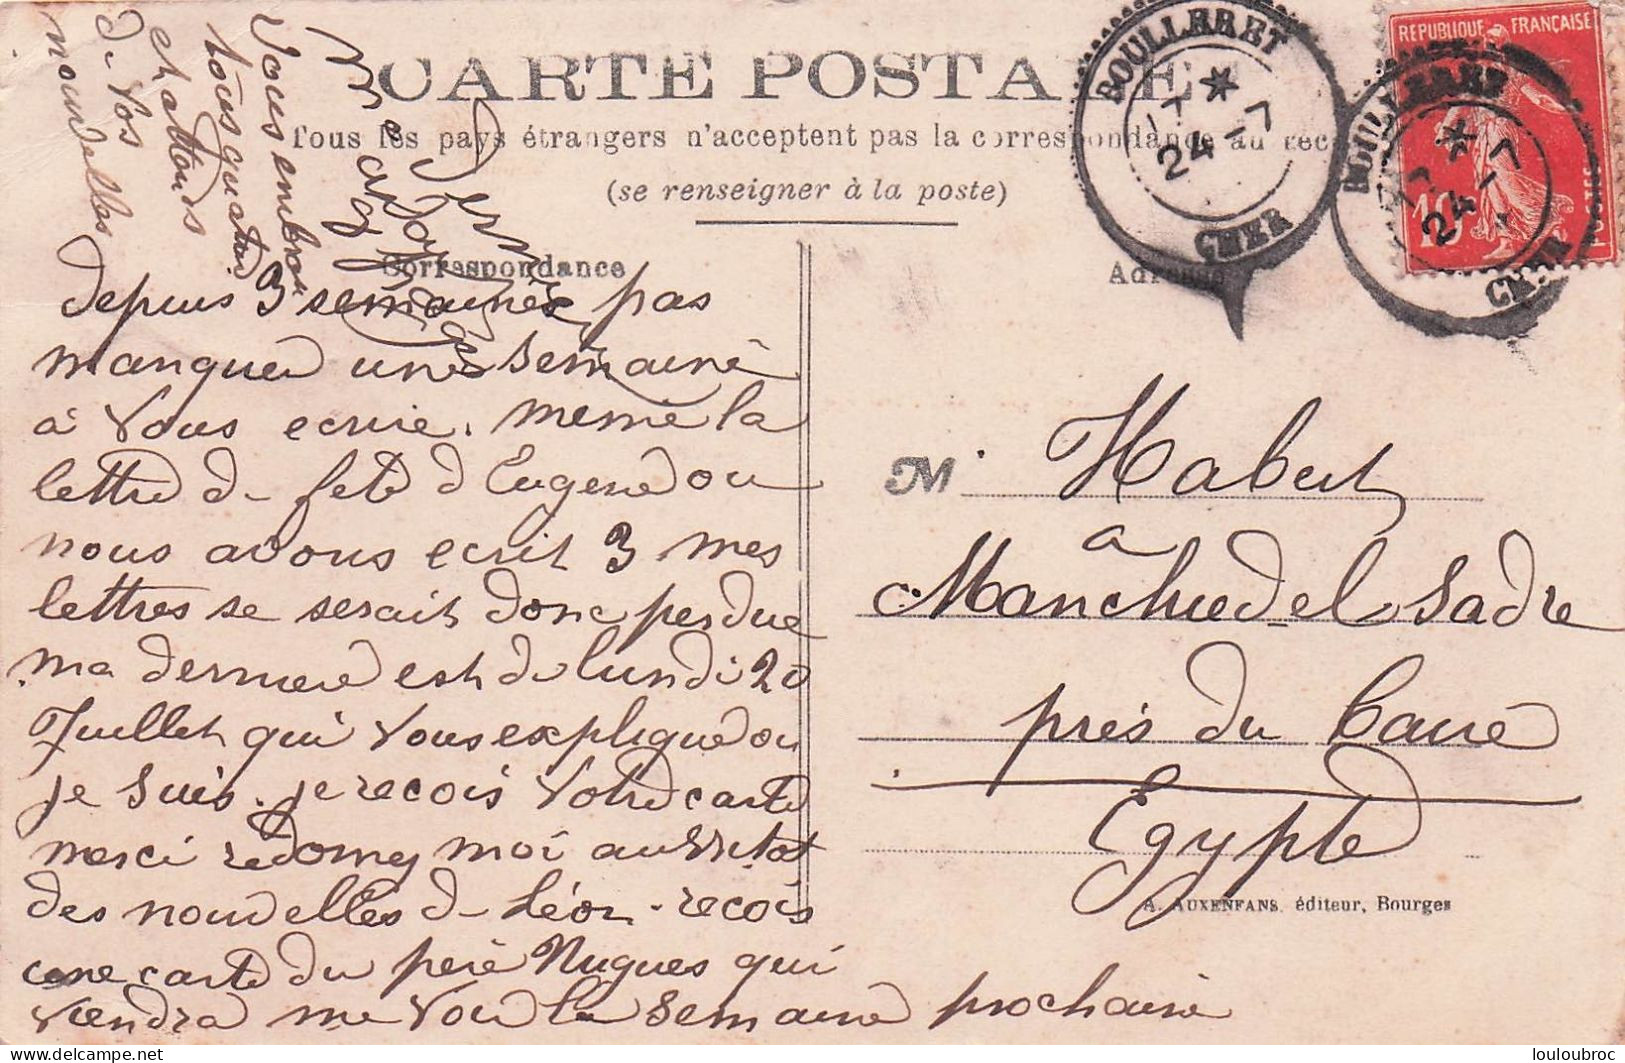 CARTE POSTALE
Tous les pays étrangers n'acceptent pas la correspondance au rec
(se renseigner à la poste)
Correspondance
Adresse
BOULLERET
7 *
24 -7
CHER
REPUBLIQUE FRANÇAISE
10
POSTES
BOULLERET
7 *
24 -7
CHER
depuis 3 semaines pas
manquer une semaine
à vous ecrire. meme la
lettre de fete d Eugene ou
nous avons ecrit 3 mes
lettres se serait donc perdue
ma derniere est de lundi 20
Juillet qui vous explique ou
je suis. je recois votre carte
merci redonnez moi aussitot
des nouvelles de Léon. recois
une carte du père Nugues qui
viendra me voir la semaine prochaine
Vous embrasse
tous quatre
et attends
de vos
nouvelles
M. Habert
a
Manchied-el Sadre
près du Caire
Egypte
A. AUXENFANS, éditeur, Bourges
louloubroc
delcampe.net